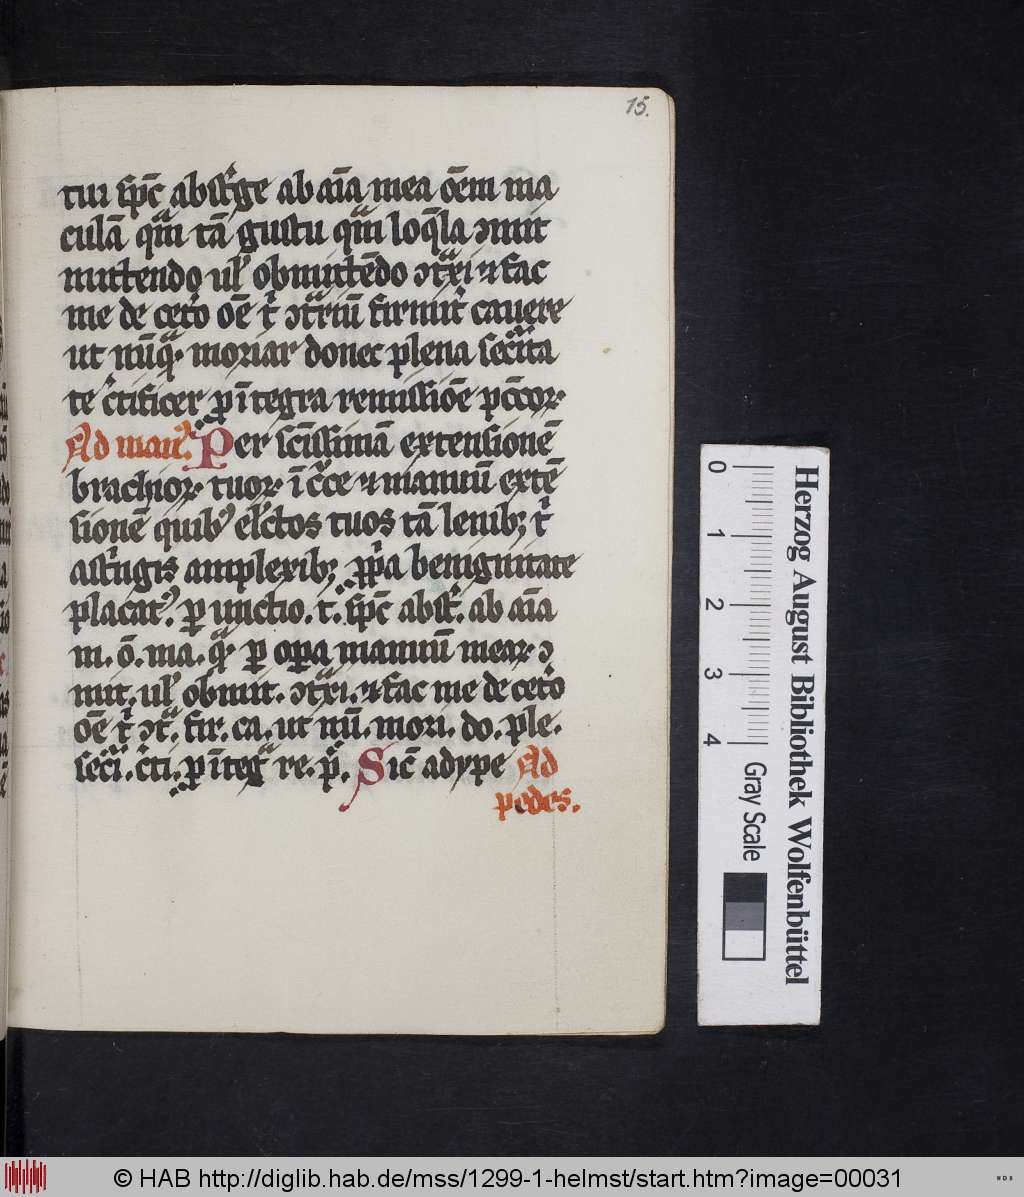 15.
tui sp̄c abst͛ge ab aīa mea ōem ma
culā qͣm tā gustu qͣm loq̄la ɔmit
mittendo ul̕ obmittēdo ɔtͣxi ⁊ fac
me de cet͛o oē t͛ ɔtͣriū firmit͛ cauere
ut nūqͣ moriar donec plena sec͛ita
te c͛tificer ꝓ ītegra remissiōe pc̄cor
Ad man᷒. Per sc̄issimā extensionē
brachior tuor ī c͛ce ⁊ manuū extē
sionē quib᷒ el̕ctos tuos tā lenib; t͛
ast͛ngis amplexib; ꝓpͥa benignitate
placat᷒. ꝑ unctio. t. sp̄c abst͛. ab aīa
m. ō. ma. qͣ. ꝑ oꝑa manuū mear ɔ
mit. ul̕ obmit. ɔtͣxi. ⁊ fac me de cet͛o
oē t͛ ɔtͣ. fir. ca. ut nū. mori. do. ple.
sec͛i. c͛ti. ꝓ ītegͣ re. p̄. Sic̄ adype Ad
pedes.
0 1 2 3 4
Gray Scale
Herzog August Bibliothek Wolfenbüttel
© HAB http://diglib.hab.de/mss/1299-1-helmst/start.htm?image=00031